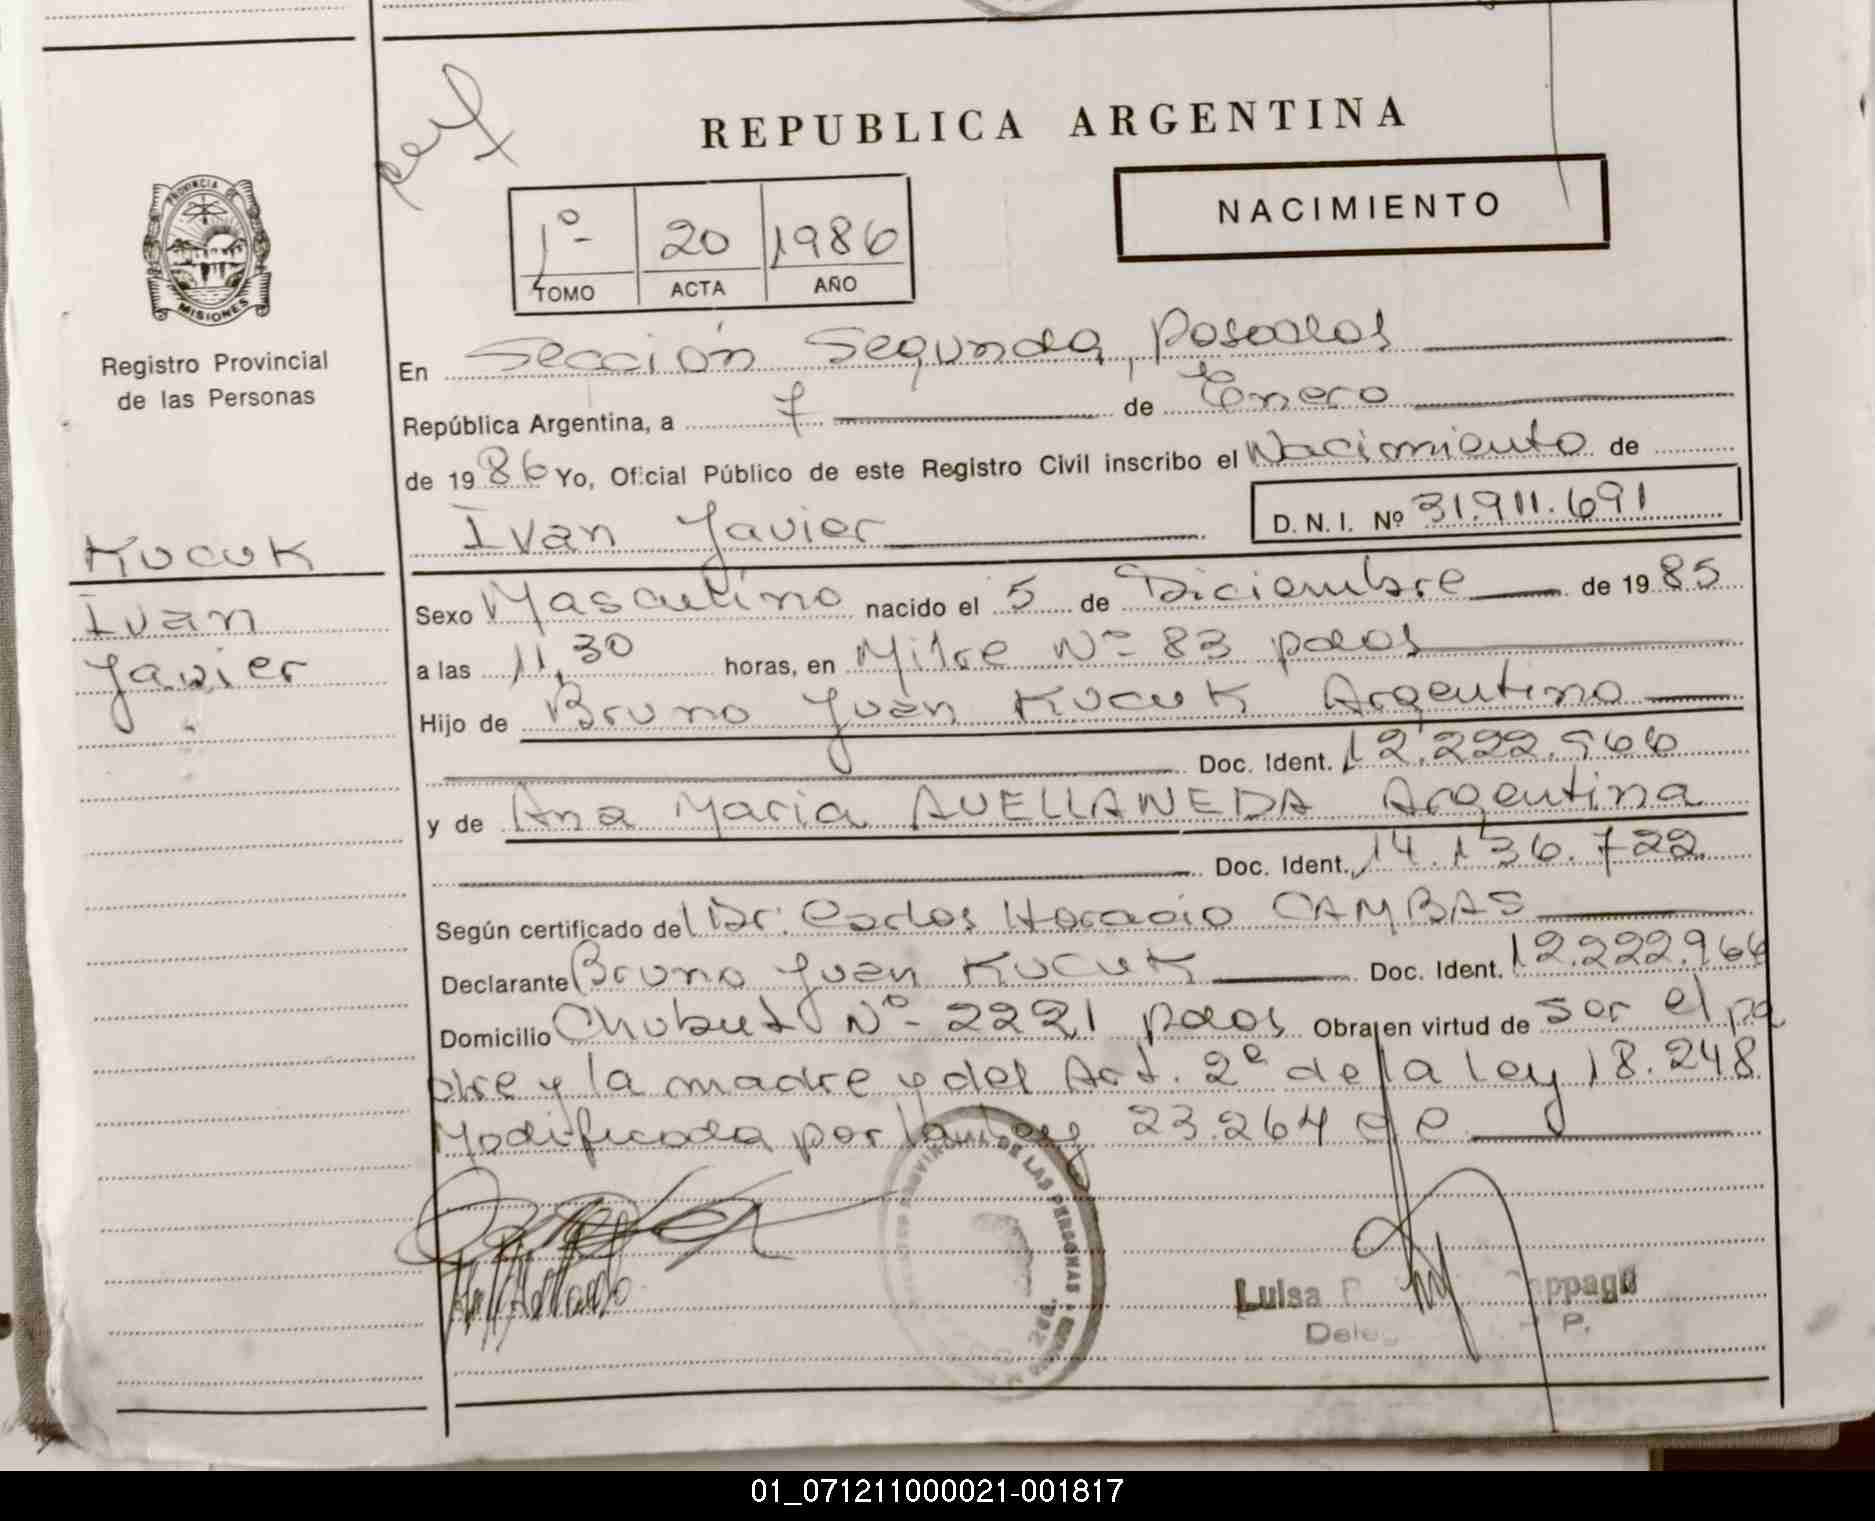 REPUBLICA ARGENTINA
NACIMIENTO
1º 20 1986
TOMO ACTA AÑO
PROVINCIA DE
MISIONES
Registro Provincial
de las Personas
KUCUK
Ivan
Javier
En Sección Segunda, Posadas
República Argentina, a 7 de Enero
de 1986 Yo, Oficial Público de este Registro Civil inscribo el Nacimiento de
Ivan Javier D. N. I. Nº 31.911.691
Sexo Masculino nacido el 5 de Diciembre de 1985
a las 11,30 horas, en Mitre Nº 83 pdas
Hijo de Bruno Juan KUCUK Argentino
Doc. Ident. 12.222.966
y de Ana Maria AVELLANEDA Argentina
Doc. Ident. 14.136.722
Según certificado del Dr. Carlos Horacio CAMBAS
Declarante Bruno Juan KUCUK Doc. Ident. 12.222.966
Domicilio Chubut Nº 2221 pdas Obra en virtud de ser el pa
dre y la madre y del Art. 2º de la Ley 18.248
Modificada por la Ley 23.264
DE LAS PERSONAS
Luisa
01_071211000021-001817